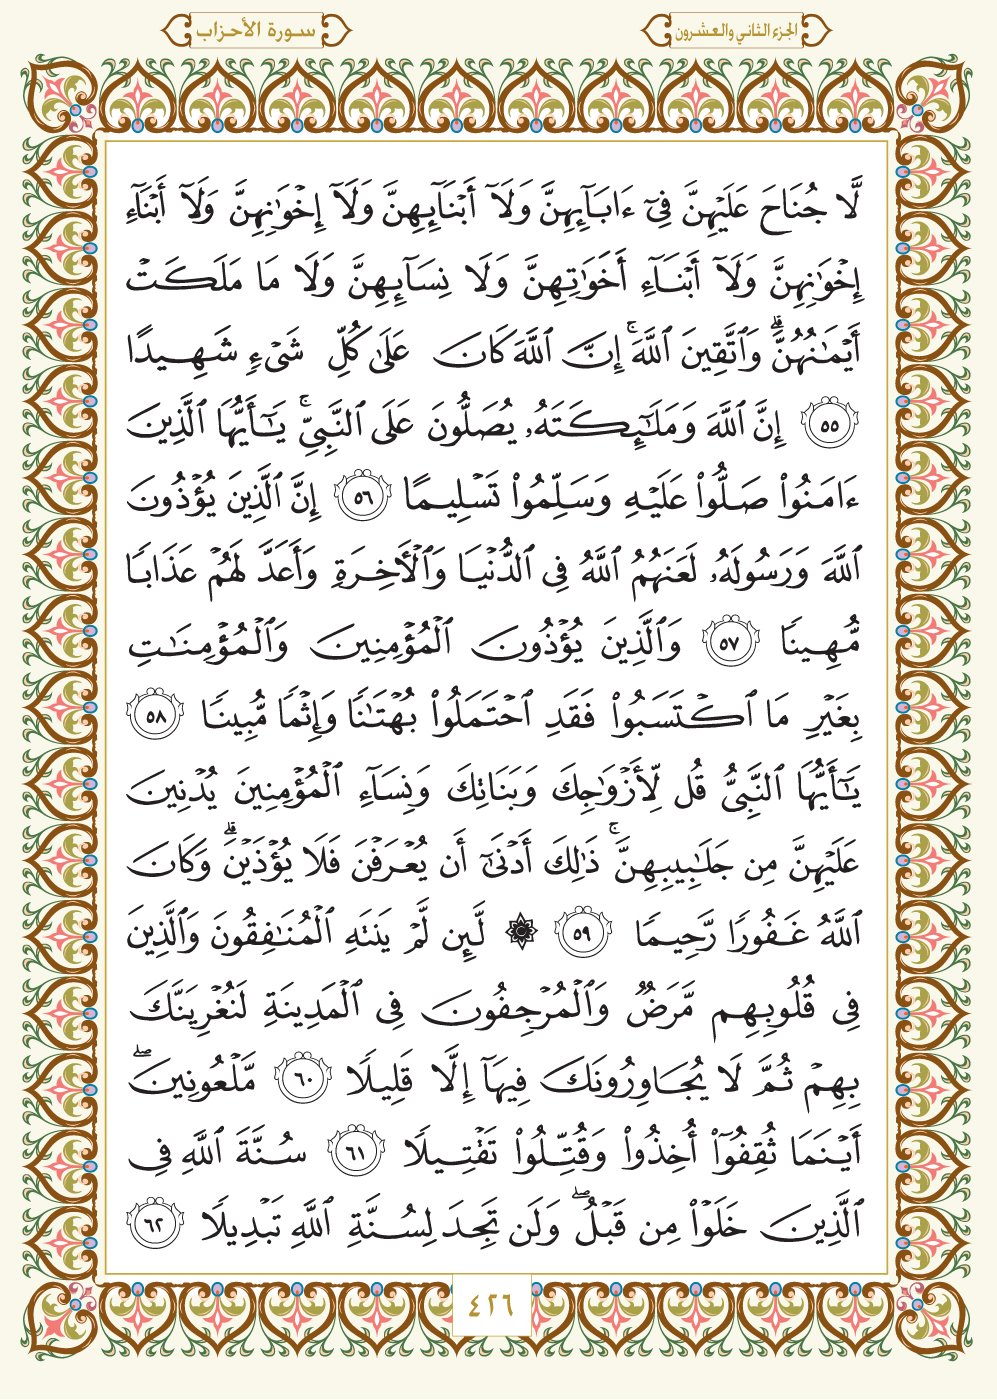 الجزء الثاني والعشرون
سورة الأحزاب
لَّا جُنَاحَ عَلَيْهِنَّ فِىٓ ءَابَآئِهِنَّ وَلَآ أَبْنَآئِهِنَّ وَلَآ إِخْوَٰنِهِنَّ وَلَآ أَبْنَآءِ
إِخْوَٰنِهِنَّ وَلَآ أَبْنَآءِ أَخَوَٰتِهِنَّ وَلَا نِسَآئِهِنَّ وَلَا مَا مَلَكَتْ
أَيْمَـٰنُهُنَّ ۗ وَٱتَّقِينَ ٱللَّهَ ۚ إِنَّ ٱللَّهَ كَانَ عَلَىٰ كُلِّ شَىْءٍ شَهِيدًا
٥٥ إِنَّ ٱللَّهَ وَمَلَـٰٓئِكَتَهُۥ يُصَلُّونَ عَلَى ٱلنَّبِىِّ ۚ يَـٰٓأَيُّهَا ٱلَّذِينَ
ءَامَنُوا۟ صَلُّوا۟ عَلَيْهِ وَسَلِّمُوا۟ تَسْلِيمًا ٥٦ إِنَّ ٱلَّذِينَ يُؤْذُونَ
ٱللَّهَ وَرَسُولَهُۥ لَعَنَهُمُ ٱللَّهُ فِى ٱلدُّنْيَا وَٱلْـَٔاخِرَةِ وَأَعَدَّ لَهُمْ عَذَابًا
مُّهِينًا ٥٧ وَٱلَّذِينَ يُؤْذُونَ ٱلْمُؤْمِنِينَ وَٱلْمُؤْمِنَـٰتِ
بِغَيْرِ مَا ٱكْتَسَبُوا۟ فَقَدِ ٱحْتَمَلُوا۟ بُهْتَـٰنًا وَإِثْمًا مُّبِينًا ٥٨
يَـٰٓأَيُّهَا ٱلنَّبِىُّ قُل لِّأَزْوَٰجِكَ وَبَنَاتِكَ وَنِسَآءِ ٱلْمُؤْمِنِينَ يُدْنِينَ
عَلَيْهِنَّ مِن جَلَـٰبِيبِهِنَّ ۚ ذَٰلِكَ أَدْنَىٰٓ أَن يُعْرَفْنَ فَلَا يُؤْذَيْنَ ۗ وَكَانَ
ٱللَّهُ غَفُورًا رَّحِيمًا ٥٩ ۞ لَّئِن لَّمْ يَنتَهِ ٱلْمُنَـٰفِقُونَ وَٱلَّذِينَ
فِى قُلُوبِهِم مَّرَضٌ وَٱلْمُرْجِفُونَ فِى ٱلْمَدِينَةِ لَنُغْرِيَنَّكَ
بِهِمْ ثُمَّ لَا يُجَاوِرُونَكَ فِيهَآ إِلَّا قَلِيلًا ٦٠ مَّلْعُونِينَ ۖ
أَيْنَمَا ثُقِفُوٓا۟ أُخِذُوا۟ وَقُتِّلُوا۟ تَقْتِيلًا ٦١ سُنَّةَ ٱللَّهِ فِى
ٱلَّذِينَ خَلَوْا۟ مِن قَبْلُ ۖ وَلَن تَجِدَ لِسُنَّةِ ٱللَّهِ تَبْدِيلًا ٦٢
٤٢٦